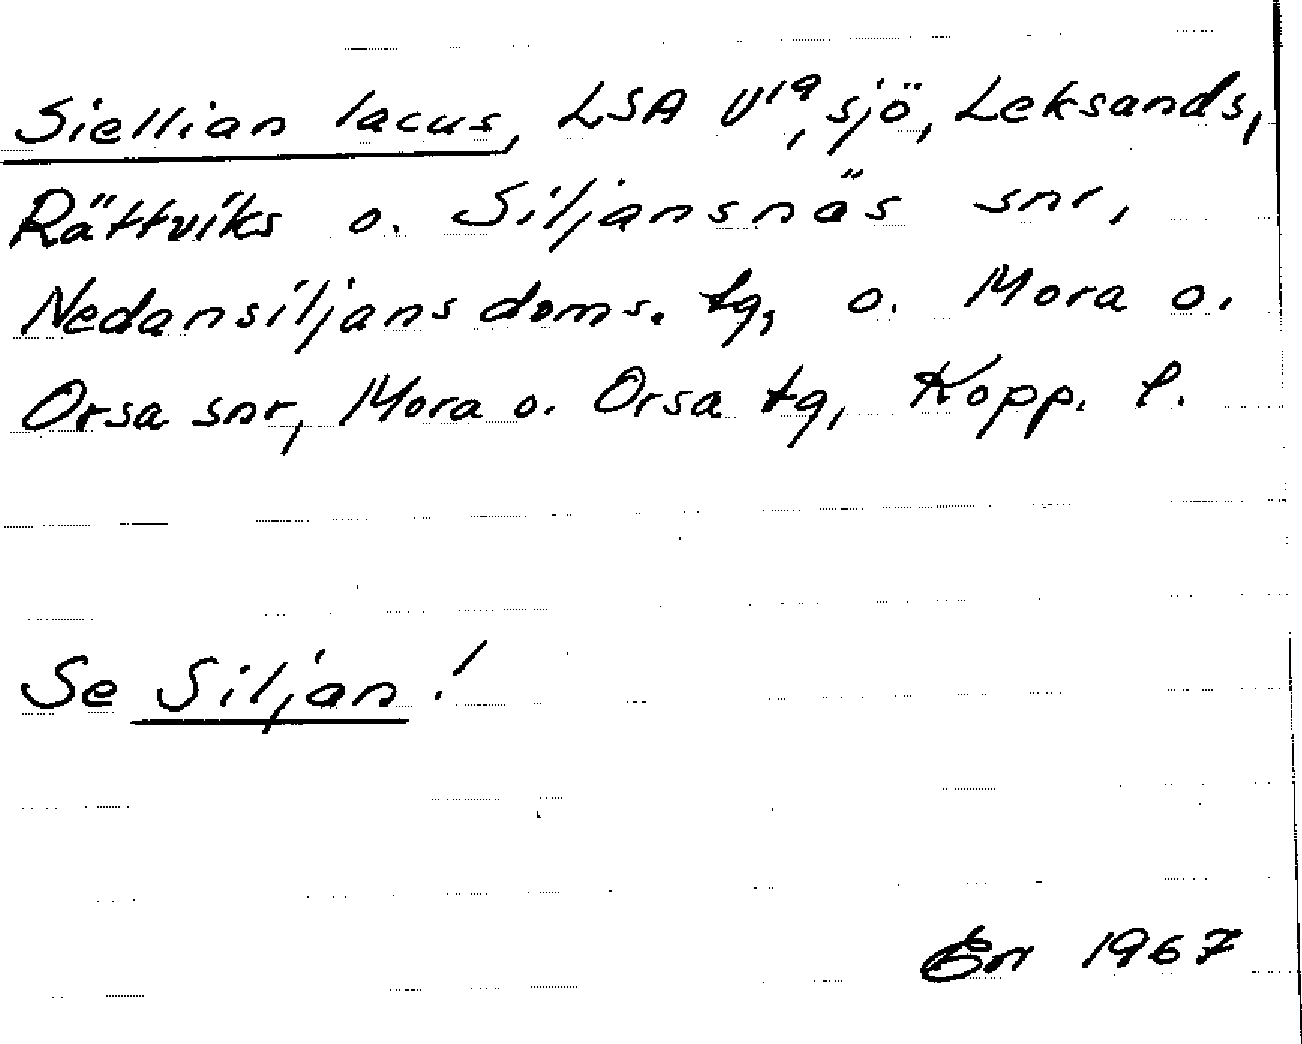 Siellian lacus, LSA U¹⁹, sjö, Leksands,
Rättviks o. Siljansnäs snr,
Nedansiljans doms. tg, o. Mora o.
Orsa snr, Mora o. Orsa tg, Kopp. l.
Se Siljan!
En 1967